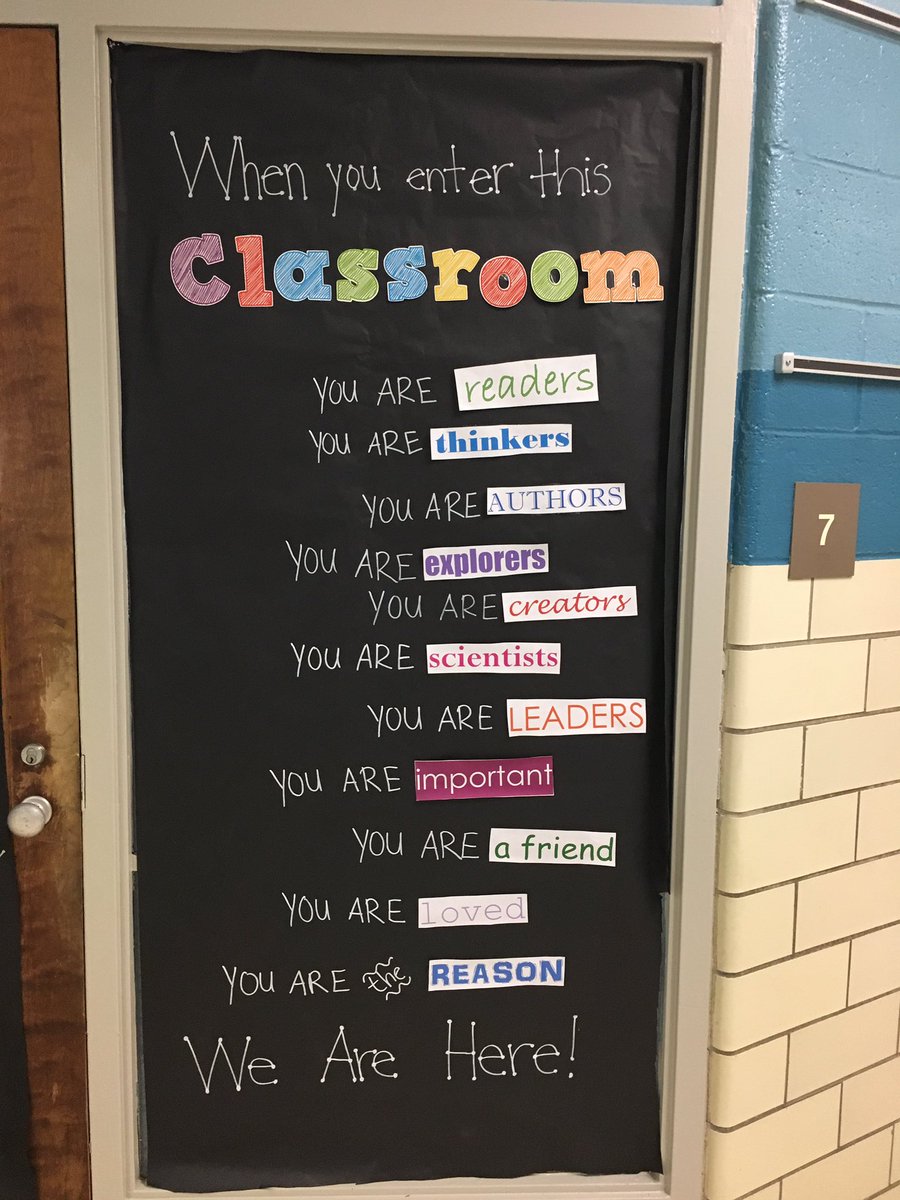 When you enter this
Classroom
YOU ARE readers
YOU ARE thinkers
YOU ARE AUTHORS
YOU ARE explorers
YOU ARE creators
YOU ARE scientists
YOU ARE LEADERS
YOU ARE important
YOU ARE a friend
YOU ARE loved
YOU ARE the REASON
We Are Here!
7